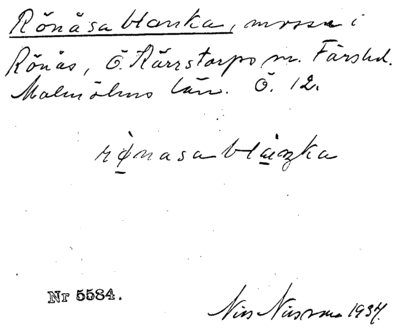 Rönåsa blanka, mosse i
Rönås, Ö. Kärrstorps sn. Färshd.
Malmöhus län. Ö. 12.
rönasa blaŋka
Nr 5584.
Nils Nilsson 1937.